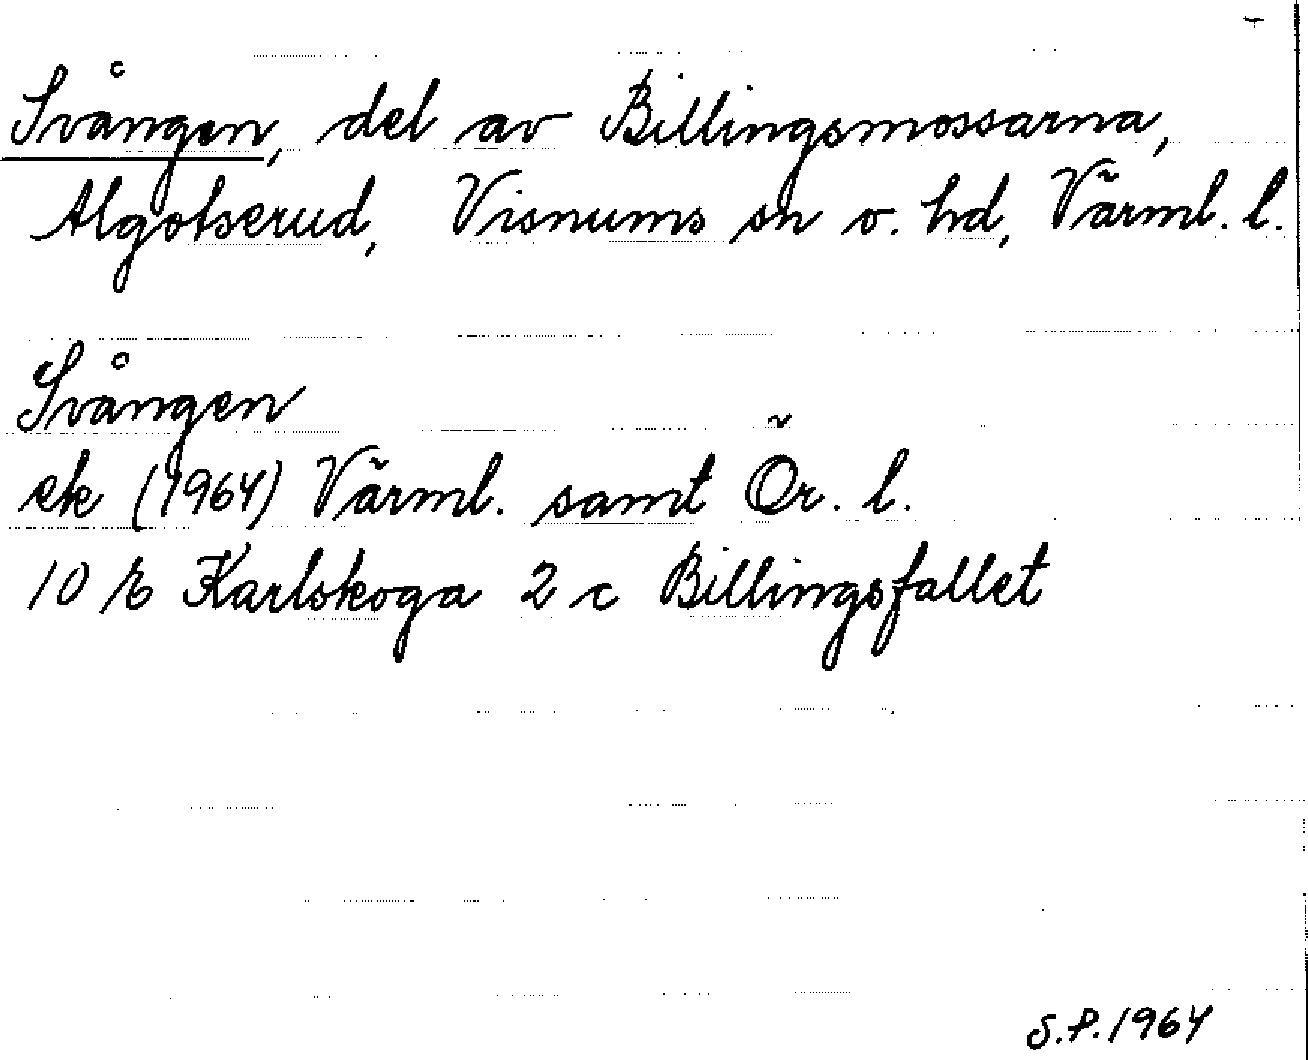 Svången, del av Billingsmossarna,
Algotserud, Visnums sn o. hd, Värml. l.
Svången
ek (1964) Värml. samt Ör. l.
10 E Karlskoga 2 c Billingsfallet
S.P. 1964